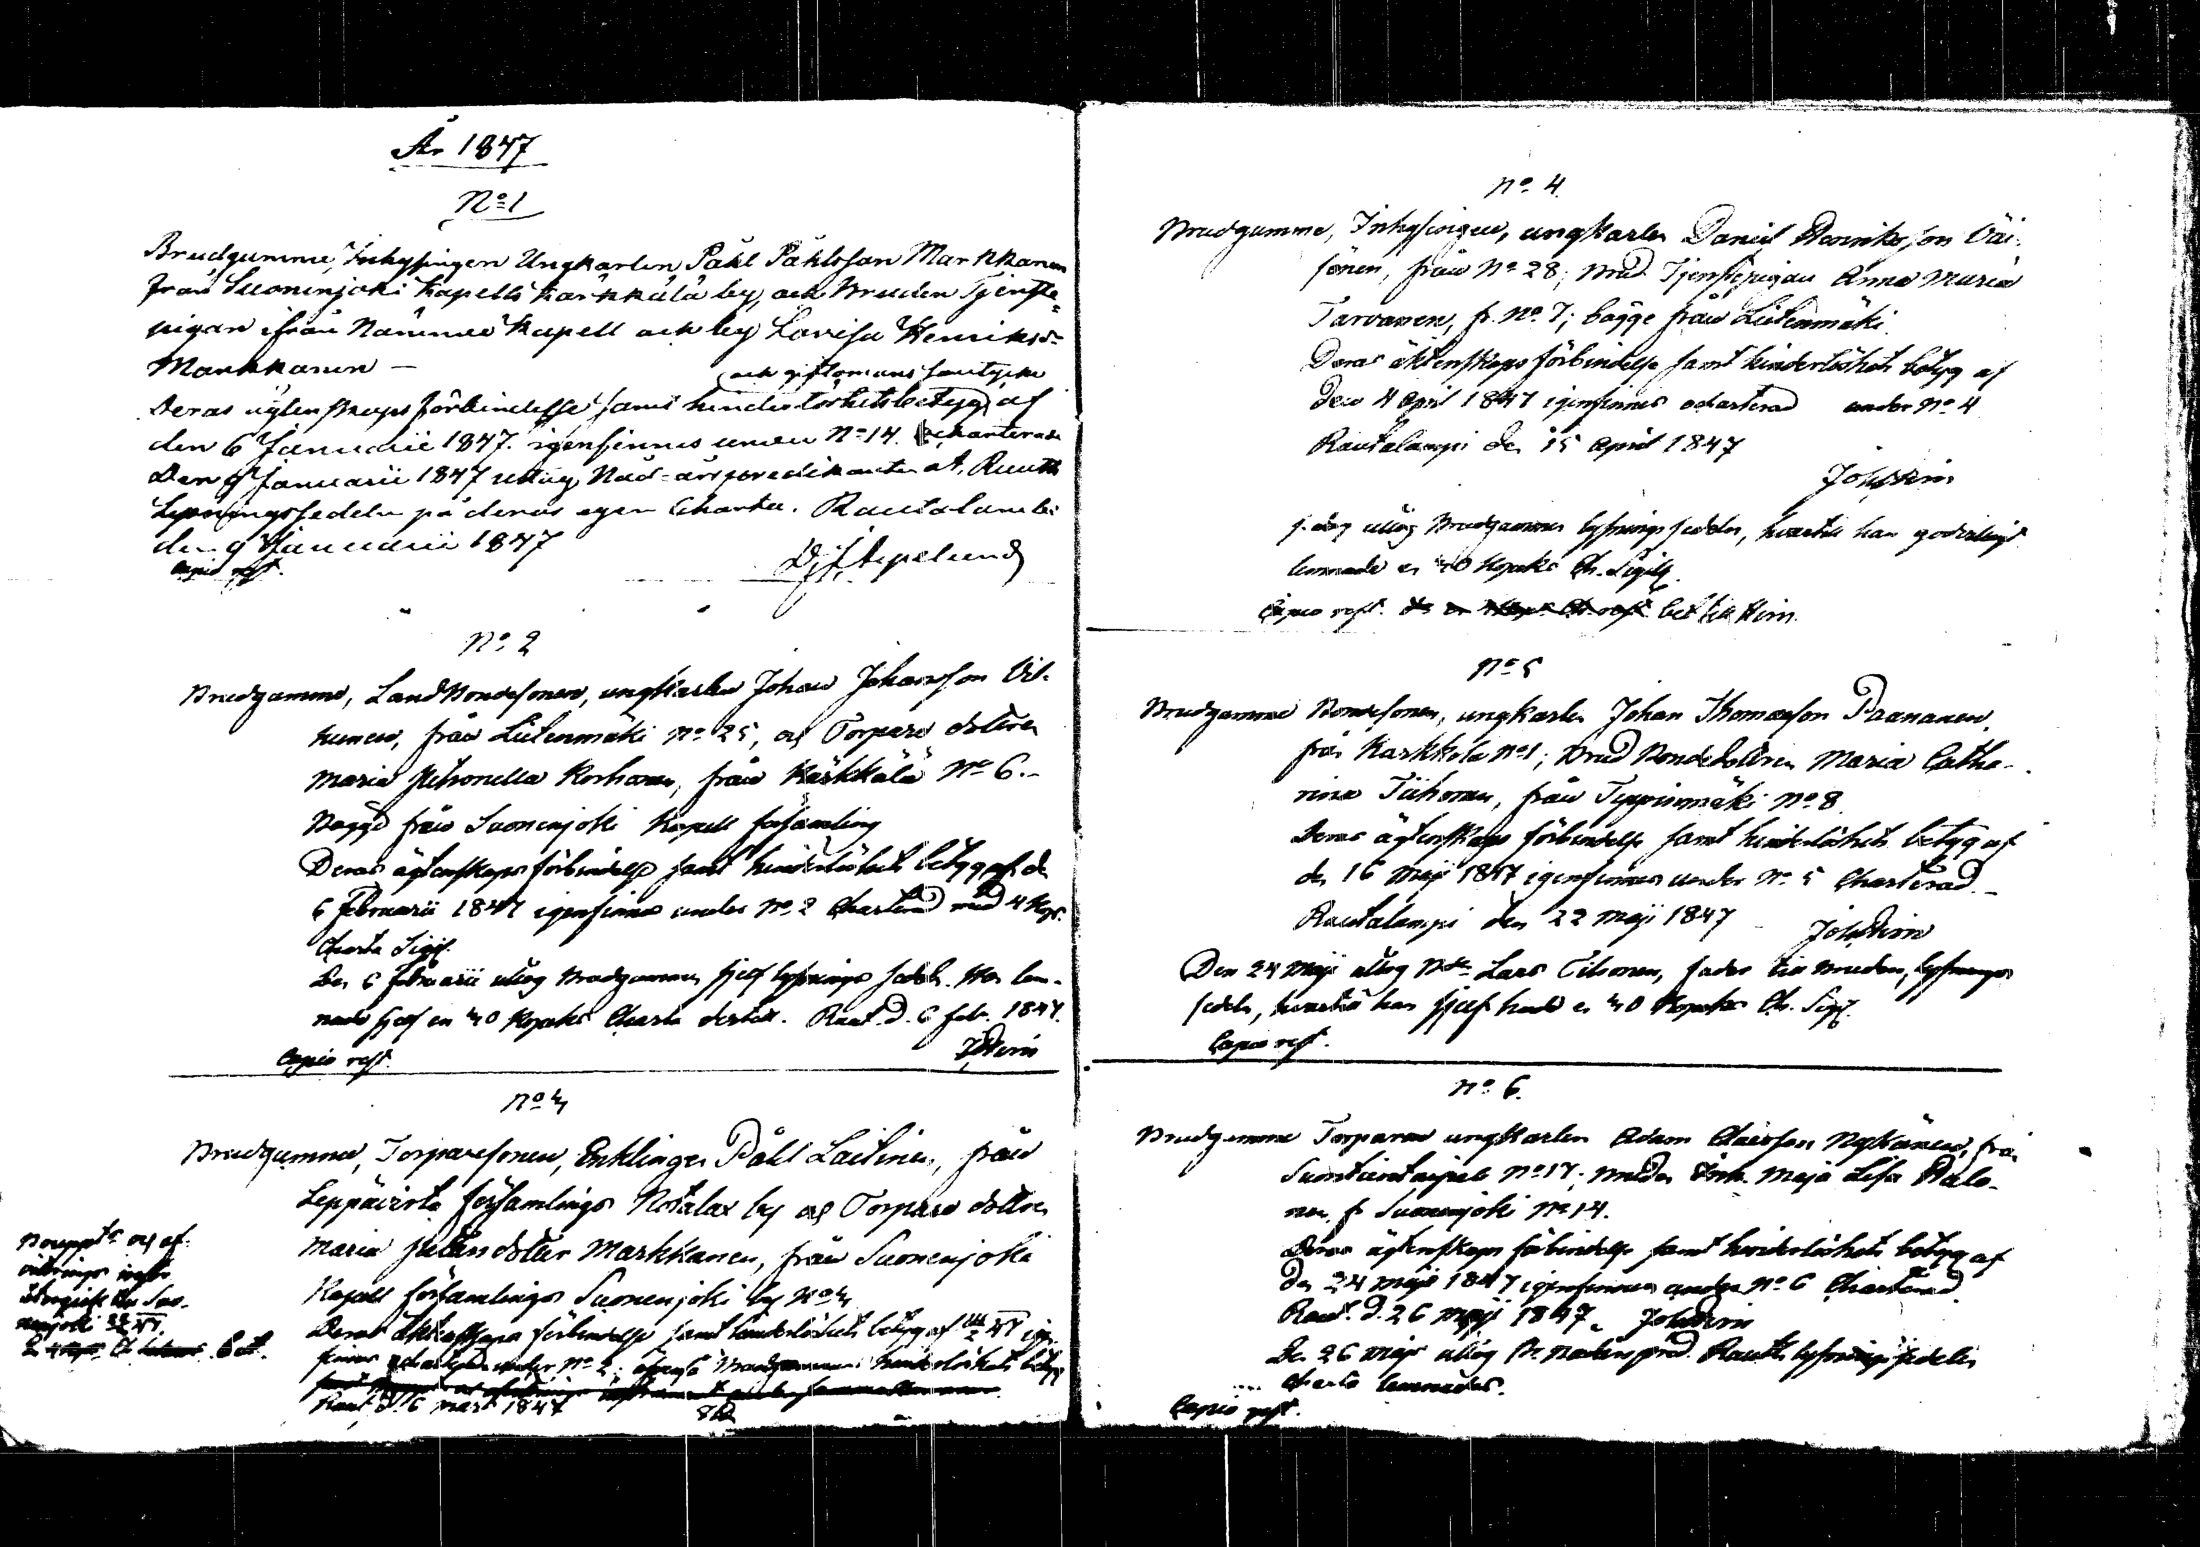 År 1847
No 1
Brudgumme, Inhysingen Ungkarlen Påhl Påhlsson Markkanen
från Suonenjoki Kapells Kärkkälä by, och Bruden Tjenste-
pigan ifrån Nämnde Kapell och by Lovisa Henriksdr
Markkanen —
och giftomans samtycke
Deras ägtenskaps förbindelse samt hinderlöshetsbetyg af
den 6 Januarii 1847. igenfinnes under No 14. Charterade
Den 9 Januarii 1847 uttog Nåd-års predikanten A. Ruuth
Lysningssedeln på deras egen Charta. Rautalambi
den 9 Januarii 1847
Copia rest.
No 2
Brudgumme, Landbondesonen, ungkarlen Johan Johansson Vil-
hunen, från Lietenmäki No 25, och Torpare dottren
Maria Petronella Korhonen, från Kärkkälä No 6.
Bägge från Suonenjoki Kapell församling
Deras ägtenskaps förbindelse samt hinderlöshets betyg af d.
6 Februarii 1847 igenfinnes under No 2 Charterad med 4 Kop.
Charta Sigil.
Den 6 Februarii uttog Brudgummen sjelf lysnings sedeln. Han lem-
nade sjelf en 40 Kopeks Charta dertill. Raut. d. 6 feb. 1847.
Copia rest.
No 3
Brudgumme, Torparesonen, Enklingen Påhl Laitinen, från
Leppävirta församlings Kotalax by och Torpare dottren
Maria Petersdotter Markkanen, från Suonenjoki
Kapell församlings Suonenjoki by No 3
Deras äktenskaps förbindelse samt hinderlöshets betyg af
finnes under No 3; äfven Brudgummens hinderlöshets betyg
Raut. d. 6 mars 1847
och af-
vittrings
Suo-
nenjoki
No 4.
Brudgumme, Inhysingen, ungkarlen Daniel Henriksson Väi-
sänen, från No 28; brud Tjenstepigan Anna Maria
Tarvanen, fr. No 7; bägge från Lietenmäki
Deras äktenskaps förbindelse samt hinderlöshets betyg af
den 4 April 1847 igenfinnes ocharterad under No 4
Rautalampi den 15 April 1847
I dag uttog Brudgummen lysnings sedeln, hvartill han godvilligt
lemnade en 40 Kopeks Ch. Sigill.
Copia rest.
No 5
Brudgumme Bondesonen, ungkarlen Johan Thomasson Paananen,
från Karkkola No 1; Brud Bondedottren Maria Catha-
rina Tiihonen, från Tyyrinmäki No 8
Deras ägtenskaps förbindelse samt hinderlöshets betyg af
den 16 Maji 1847 igenfinnes under No 5 Charterad.
Rautalampi den 22 Maji 1847
Den 24 Maji uttog Bd. Lars Tihonen, fader till bruden, lysnings
sedeln, hvartill han sjelf hade en 40 Kopeks Ch. Sigil.
Copia rest.
No 6.
Brudgumme Torparen ungkarlen Adam Classon Nykänen, från
Sumtiaintaipale No 17; bruden Inh. Maja Lisa Halo-
nen, fr Suonenjoki No 14.
Deras ägtenskaps förbindelse samt hinderlöshets betyg af
den 24 Maji 1847 igenfinnes under No 6 Charterad
Raut. d. 26 Maji 1847.
Den 26 Maji uttog Hr. nådårs pred. Ruuth lysnings sedeln
Charta lemnades.
Copia rest.